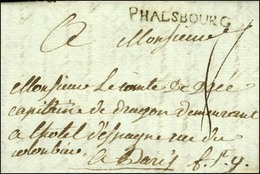 PHALSBOURG
A Monsieur
Monsieur le comte de
capitaine de dragon demeurant
a lhotel despagne rue de
colombier
a Paris f. s. g.